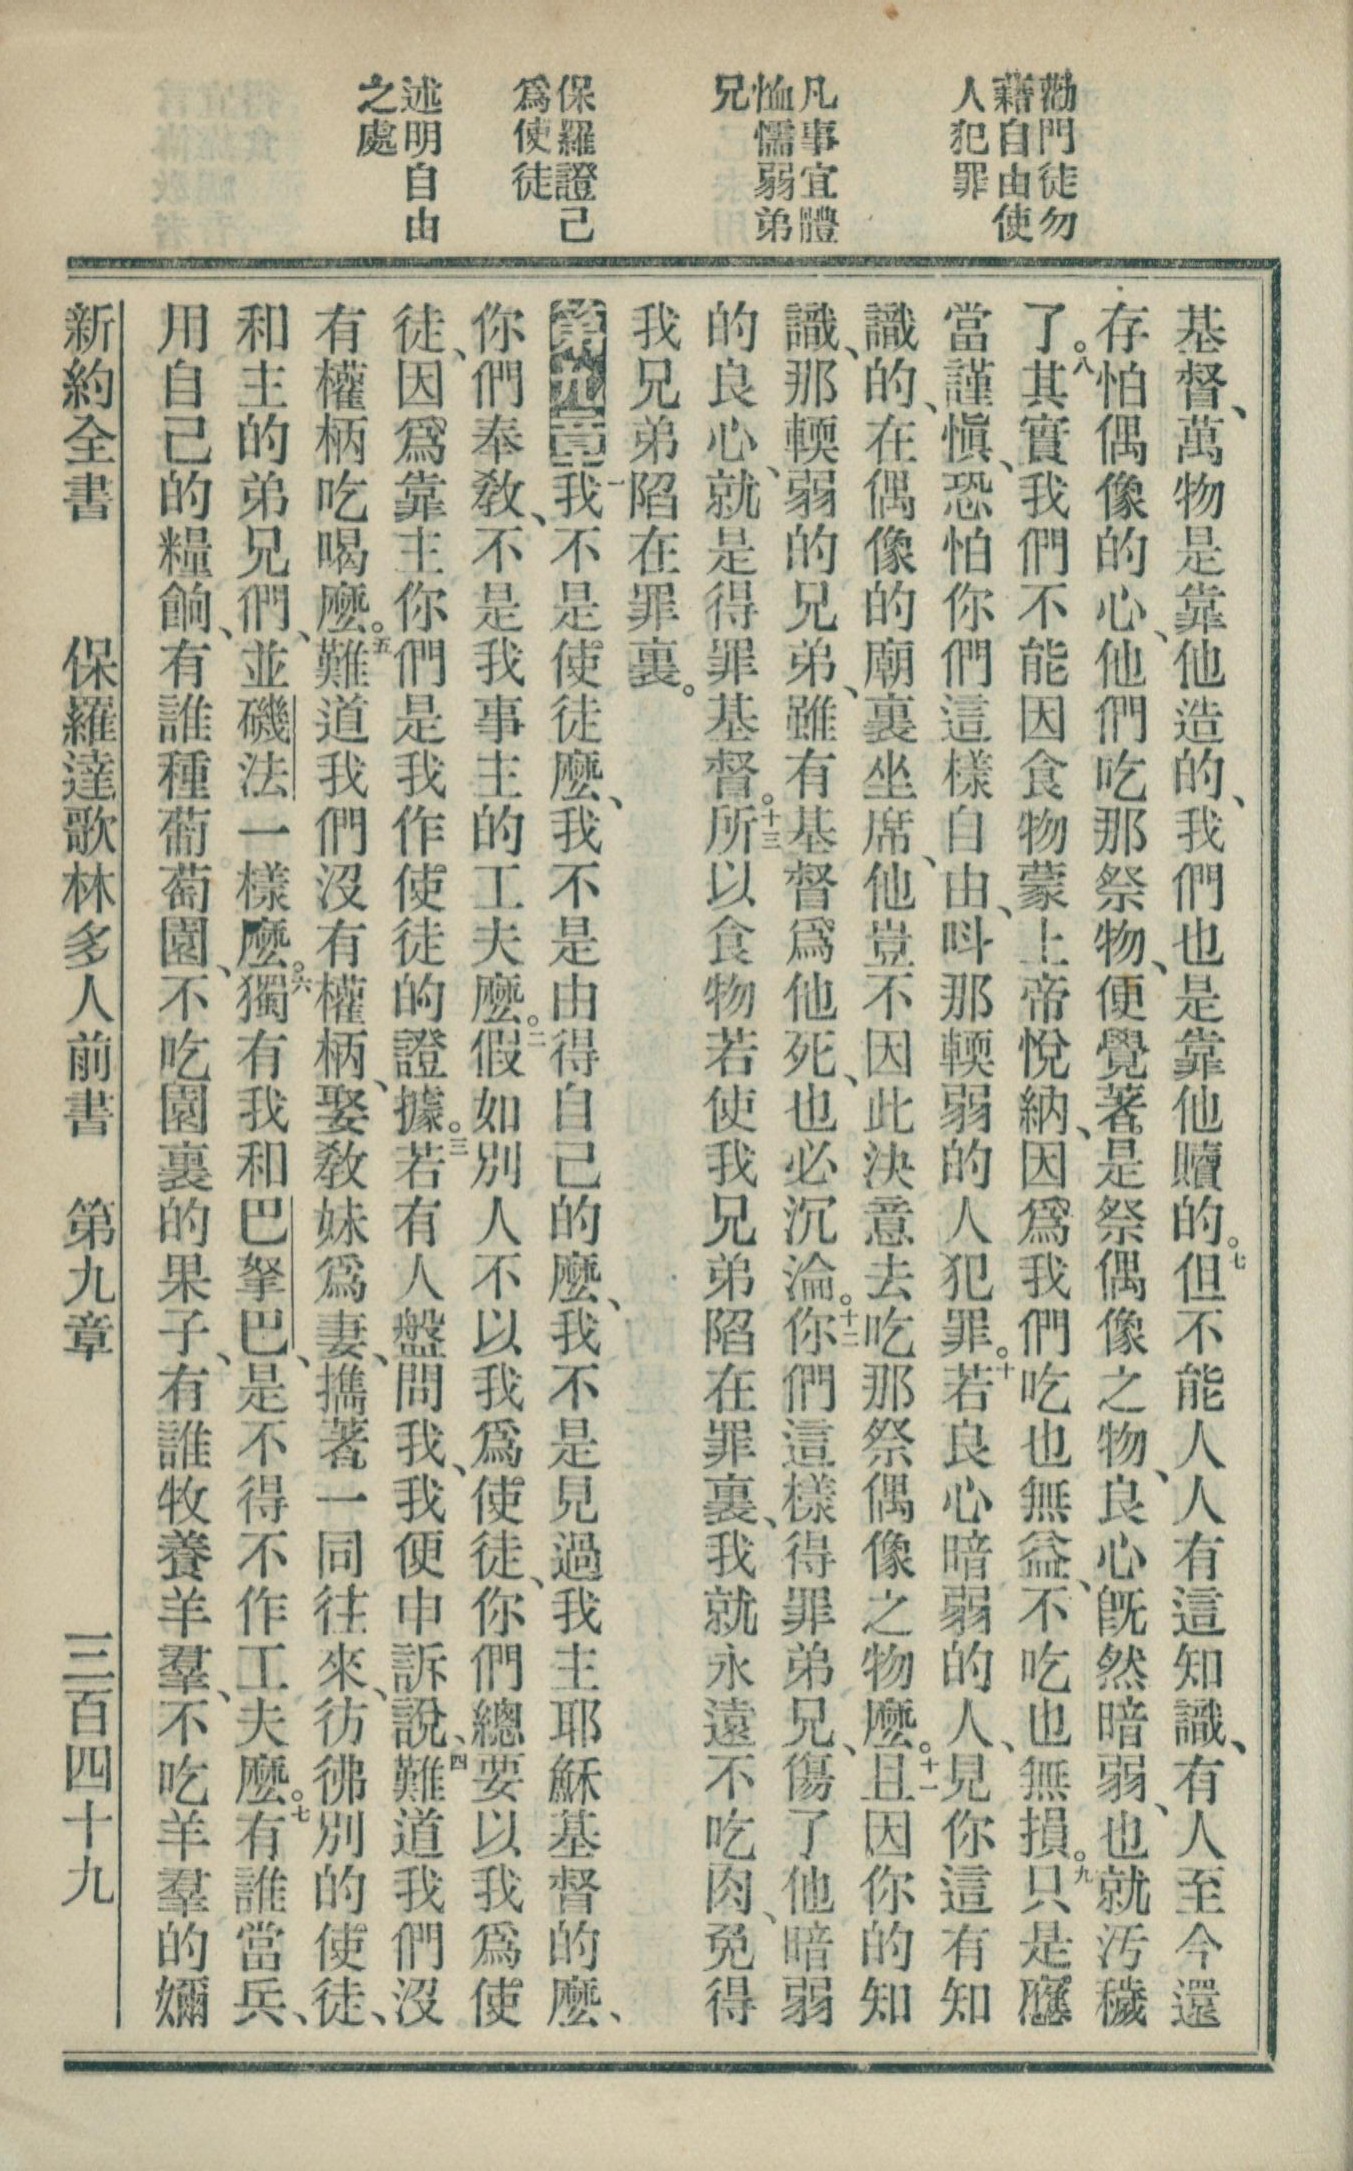 勸門徒勿
藉自由使
人犯罪
凡事宜體
恤懦弱弟
兄
保羅證己
爲使徒
述明自由
之處
基督、萬物是靠他造的、我們也是靠他贖的。七但不能人人有這知識、有人至今還
存怕偶像的心、他們吃那祭物、便覺著是祭偶像之物、良心旣然暗弱、也就汚穢
了。八其實我們不能因食物蒙上帝悅納、因爲我們吃也無益、不吃也無損。九只是應
當謹愼、恐怕你們這樣自由、呌那輭弱的人犯罪。十若良心暗弱的人、見你這有知
識的、在偶像的廟裏坐席、他豈不因此決意去吃那祭偶像之物麼。十一且因你的知
識、那輭弱的兄弟、雖有基督爲他死、也必沉淪。十二你們這樣得罪弟兄、傷了他暗弱
的良心、就是得罪基督。十三所以食物若使我兄弟陷在罪裏、我就永遠不吃肉、免得
我兄弟陷在罪裏。
第九章一我不是使徒麼、我不是由得自己的麼、我不是見過我主耶穌基督的麼、
你們奉敎、不是我事主的工夫麼。二假如別人不以我爲使徒、你們總要以我爲使
徒、因爲靠主你們是我作使徒的證據。三若有人盤問我、我便申訴說、四難道我們沒
有權柄吃喝麼。五難道我們沒有權柄、娶敎妹爲妻、攜著一同往來、彷彿別的使徒、
和主的弟兄們、並磯法一樣麼。六獨有我和巴拏巴、是不得不作工夫麼。七有誰當兵、
用自己的糧餉、有誰種葡萄園、不吃園裏的果子、有誰牧養羊羣、不吃羊羣的嬭
新約全書　保羅達歌林多人前書　第九章　三百四十九